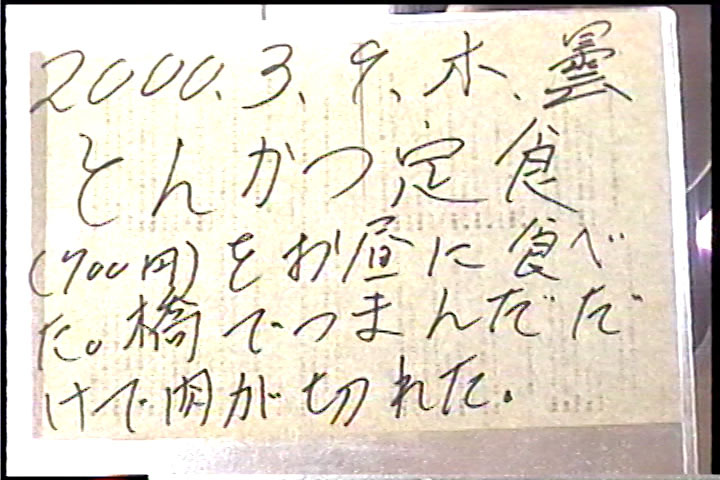 2000.3.9.木.曇
とんかつ定食
(700円)をお昼に食べ
た。橋でつまんだだ
けで肉が切れた。